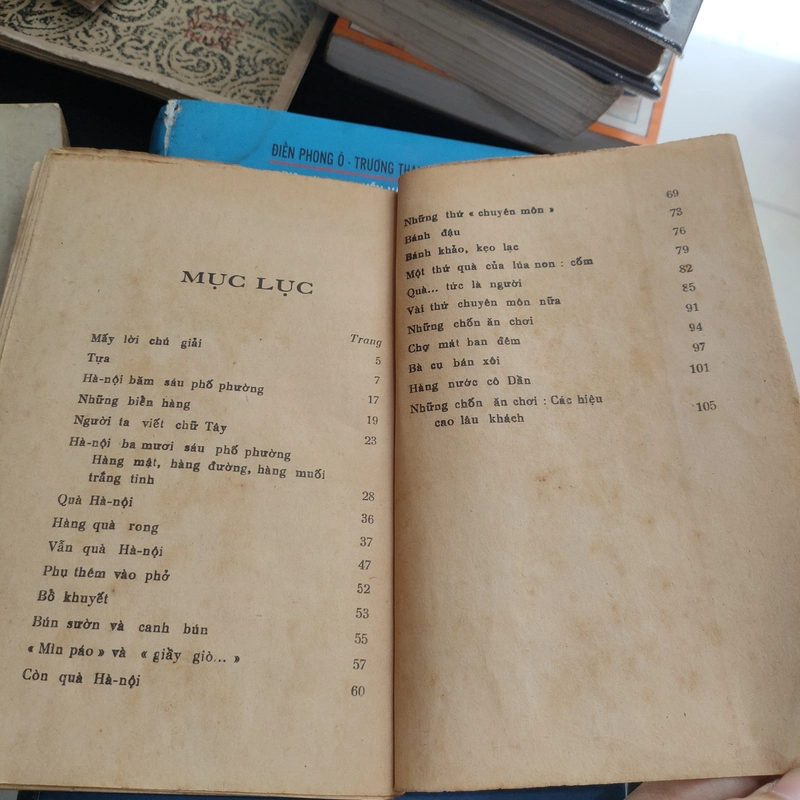 ĐIỀN PHONG Ô - TRƯƠNG
MỤC LỤC
Trang
Mấy lời chú giải 5
Tựa 7
Hà-nội băm sáu phố phường 17
Những biển hàng 19
Người ta viết chữ Tây 23
Hà-nội ba mươi sáu phố phường
Hàng mật, hàng đường, hàng muối
trắng tinh 28
Quà Hà-nội 36
Hàng quà rong 37
Vẫn quà Hà-nội 47
Phụ thêm vào phở 52
Bổ khuyết 53
Bún sườn và canh bún 55
« Mìn páo » và « giầy giò... » 57
Còn quà Hà-nội 60
Những thứ « chuyên môn » 69
Bánh đậu 73
Bánh khảo, kẹo lạc 76
Một thứ quà của lúa non : cốm 79
Quà... tức là người 82
Vài thứ chuyên môn nữa 85
Những chốn ăn chơi 91
Chợ mát ban đêm 94
Bà cụ bán xôi 97
Hàng nước cô Dần 101
Những chốn ăn chơi : Các hiệu
cao lâu khách 105